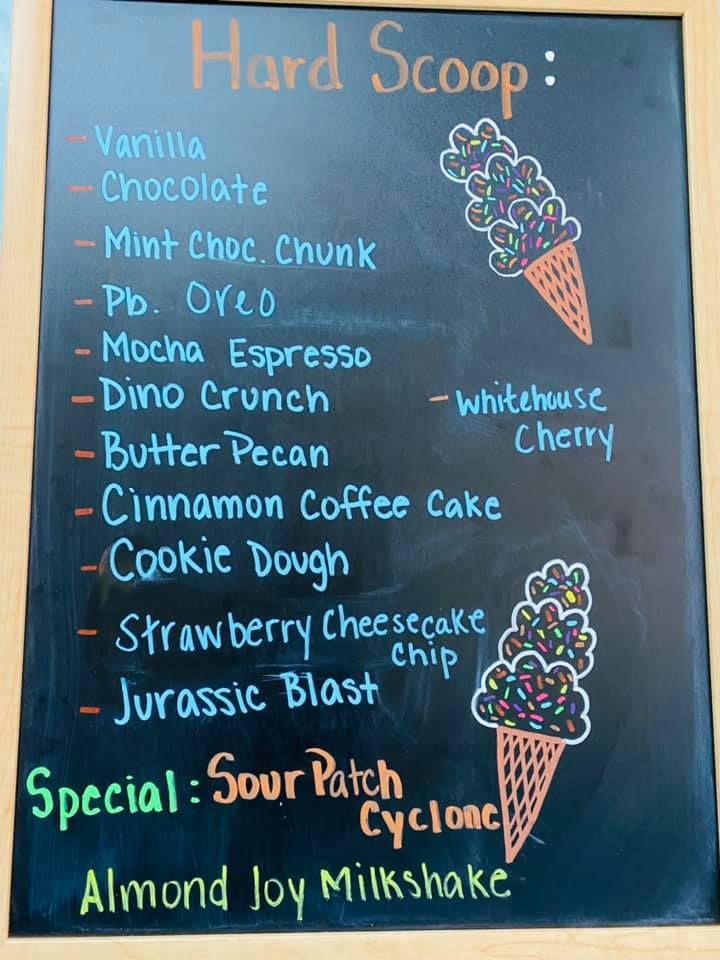 Hard Scoop:
- Vanilla
- Chocolate
- Mint Choc. Chunk
- Pb. Oreo
- Mocha Espresso
- Dino Crunch
- Whitehouse
Cherry
- Butter Pecan
- Cinnamon Coffee Cake
- Cookie Dough
- Strawberry Cheesecake
Chip
- Jurassic Blast
Special: Sour Patch
Cyclone
Almond Joy Milkshake